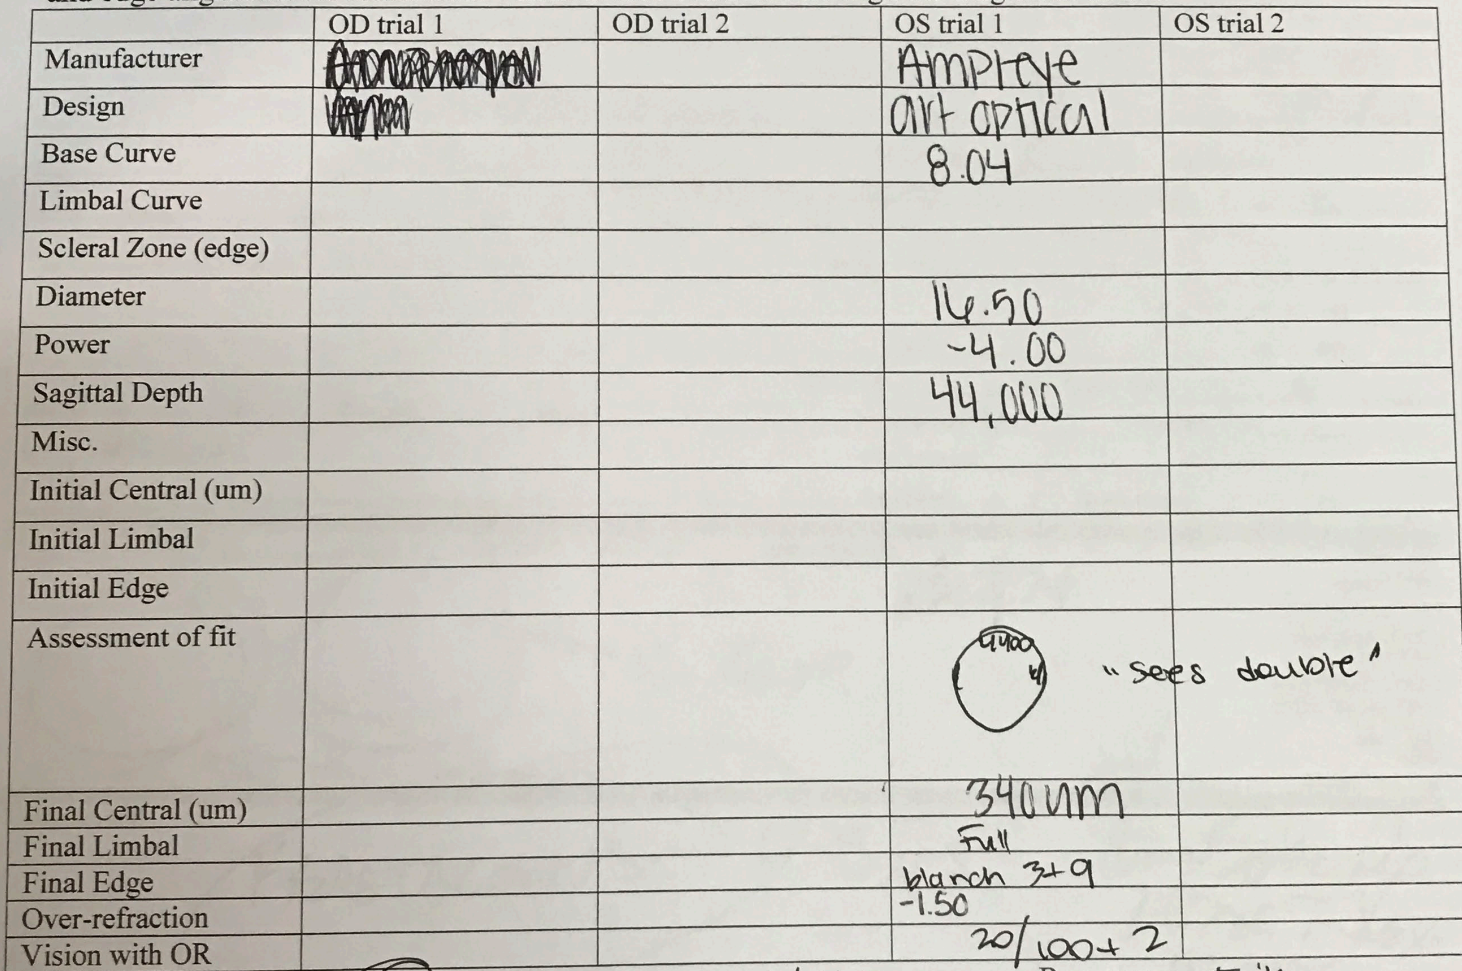 OD trial 1 OD trial 2 OS trial 1 OS trial 2
Manufacturer Ampleye
Design art optical
Base Curve 8.04
Limbal Curve
Scleral Zone (edge)
Diameter 16.50
Power -4.00
Sagittal Depth 44,000
Misc.
Initial Central (um)
Initial Limbal
Initial Edge
Assessment of fit 4400 "sees double"
Final Central (um) 340um
Final Limbal Full
Final Edge blanch 3+9
Over-refraction -1.50
Vision with OR 20/100+2